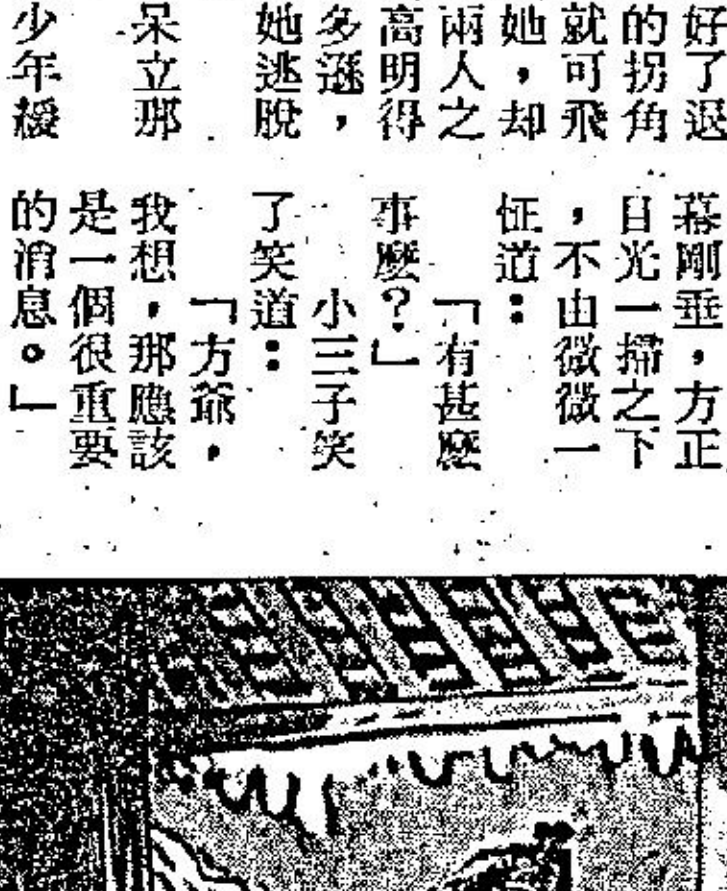 好了退
的拐角
就可飛
她，却
兩人之
高明得
多遜，
她逃脫
呆立那
少年緩
幕剛垂，方正
目光一掃之下
，不由微微一
怔道：
「有甚麼
事麼？」
小三子笑
了笑道：
「方爺，
我想，那應該
是一個很重要
的消息。」